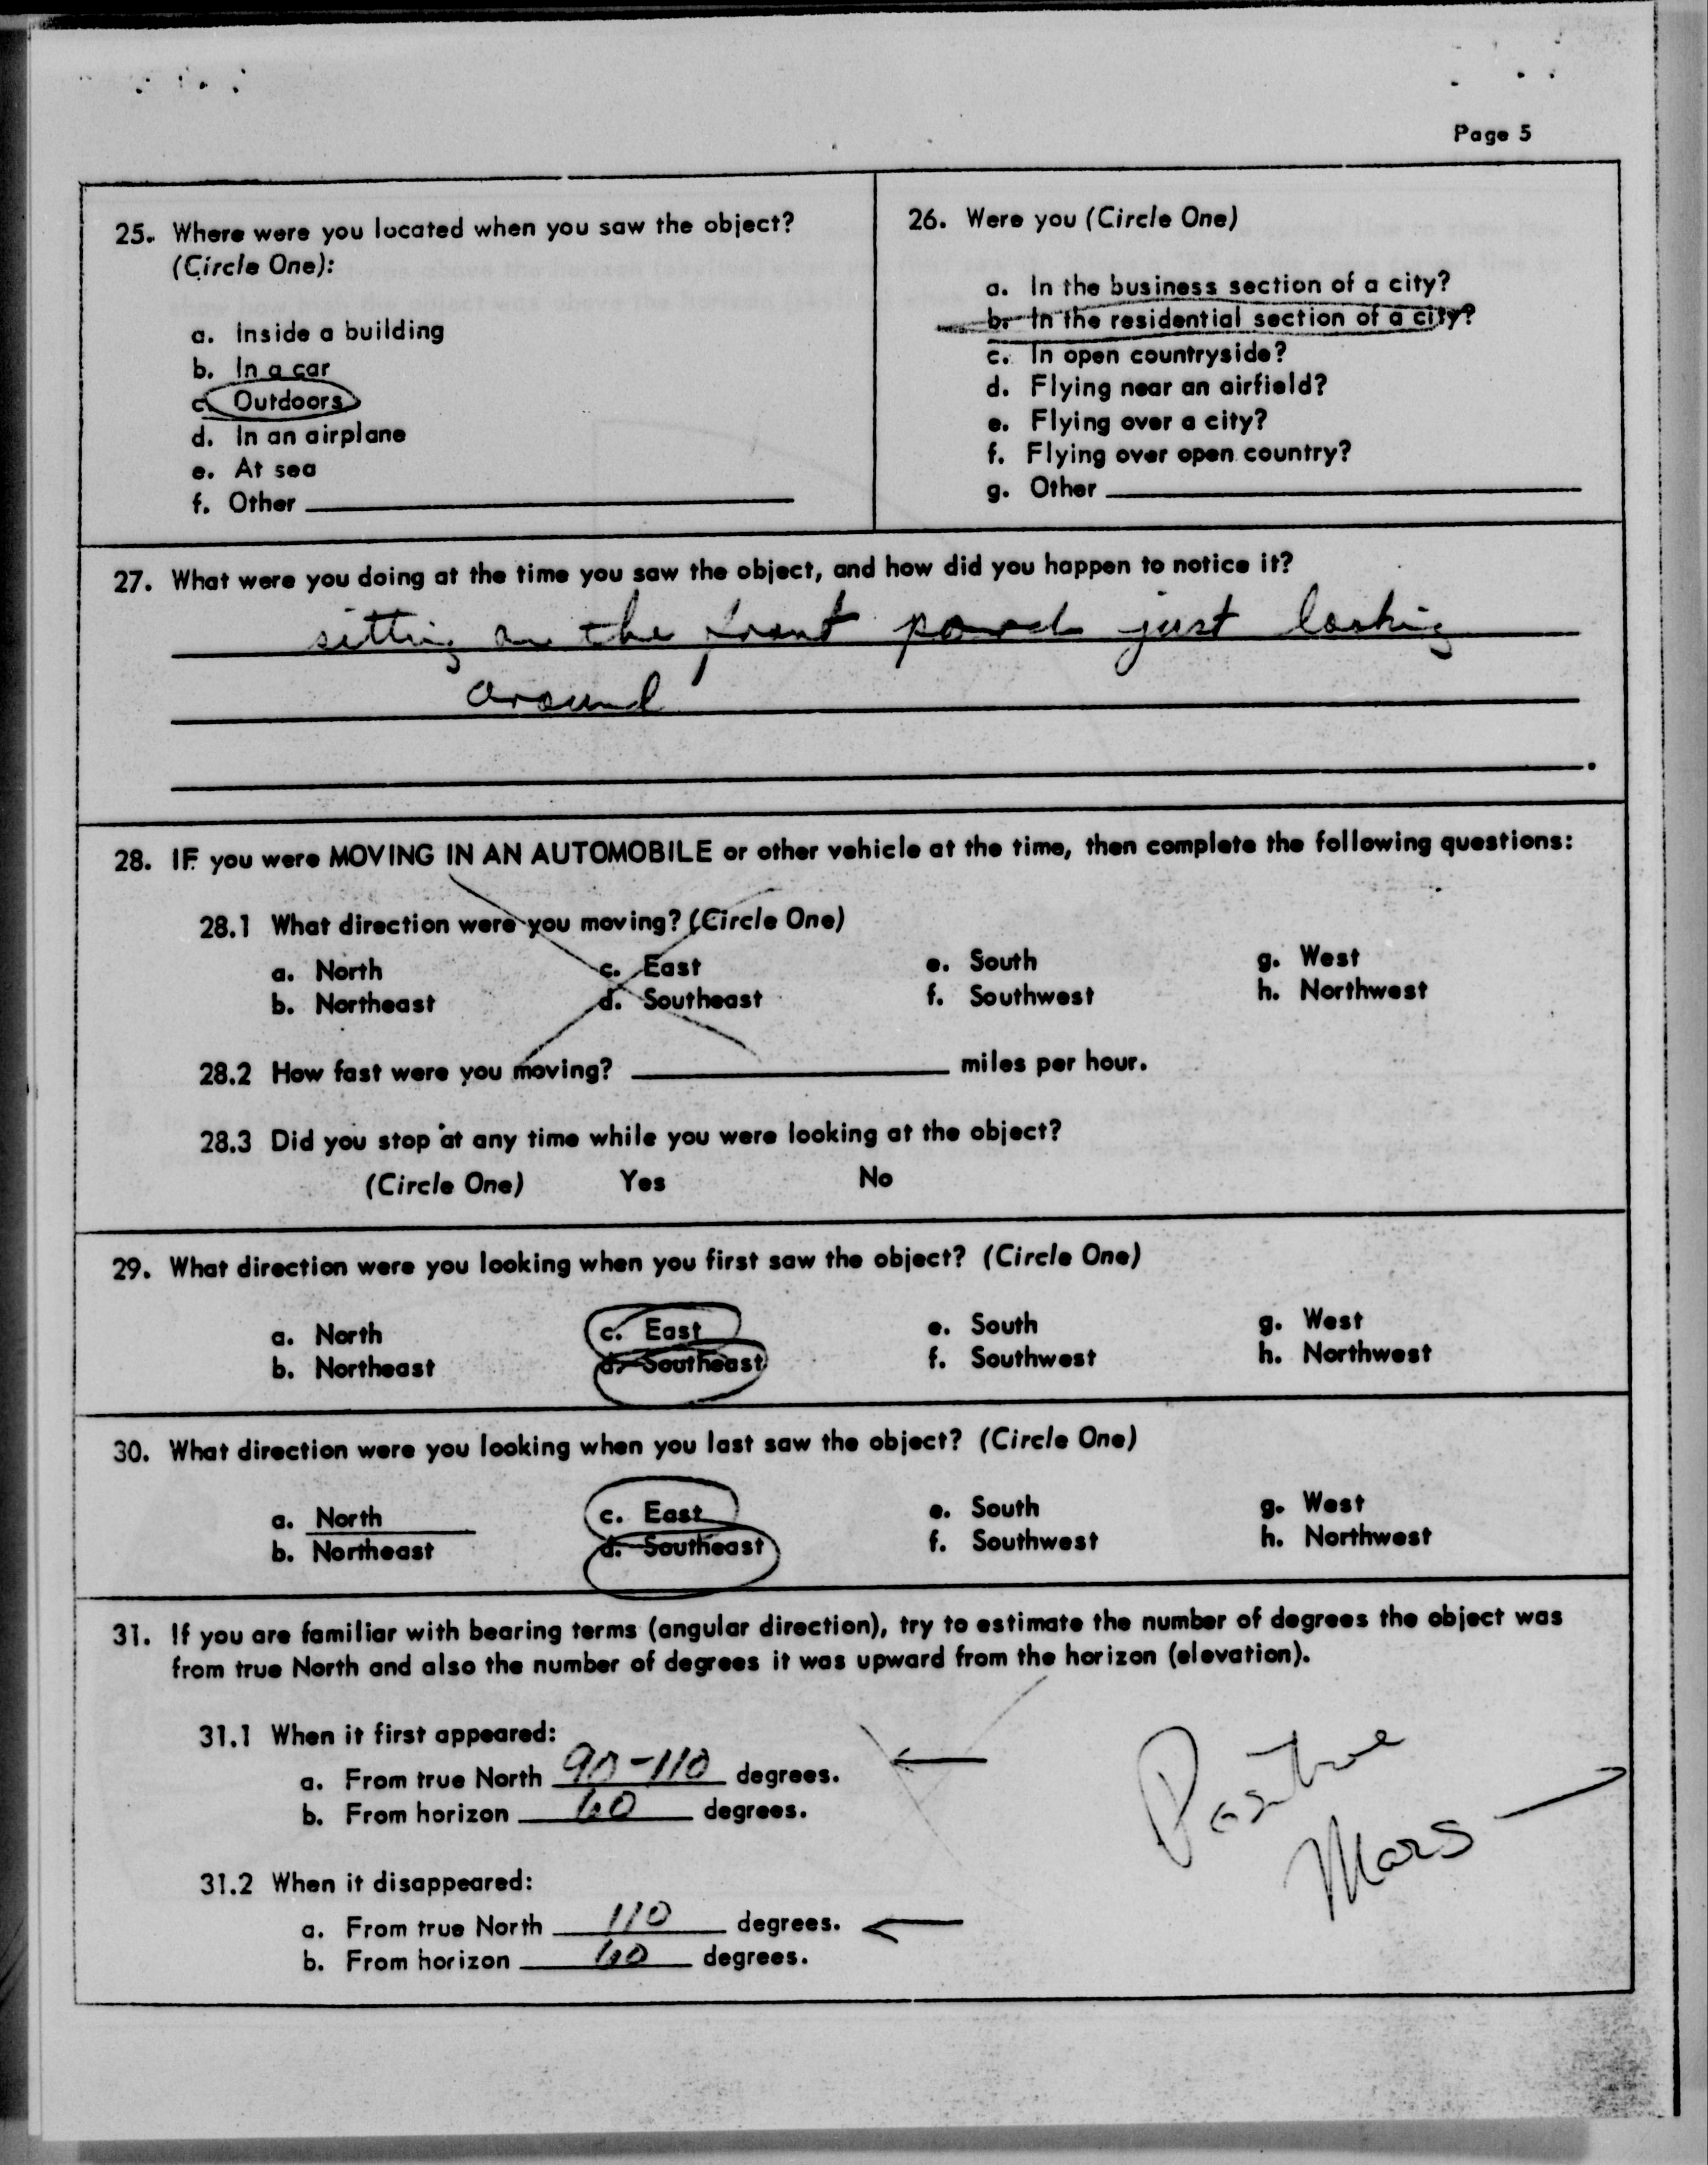 Page 5
25. Where were you located when you saw the object?
(Circle One):
a. Inside a building
b. In a car
c. Outdoors
d. In an airplane
e. At sea
f. Other
26. Were you (Circle One)
a. In the business section of a city?
b. In the residential section of a city?
c. In open countryside?
d. Flying near an airfield?
e. Flying over a city?
f. Flying over open country?
g. Other
27. What were you doing at the time you saw the object, and how did you happen to notice it?
sitting on the front porch just looking
around
28. IF you were MOVING IN AN AUTOMOBILE or other vehicle at the time, then complete the following questions:
28.1 What direction were you moving? (Circle One)
a. North c. East e. South g. West
b. Northeast d. Southeast f. Southwest h. Northwest
28.2 How fast were you moving? miles per hour.
28.3 Did you stop at any time while you were looking at the object?
(Circle One) Yes No
29. What direction were you looking when you first saw the object? (Circle One)
a. North c. East e. South g. West
b. Northeast d. Southeast f. Southwest h. Northwest
30. What direction were you looking when you last saw the object? (Circle One)
a. North c. East e. South g. West
b. Northeast d. Southeast f. Southwest h. Northwest
31. If you are familiar with bearing terms (angular direction), try to estimate the number of degrees the object was
from true North and also the number of degrees it was upward from the horizon (elevation).
31.1 When it first appeared:
a. From true North 90-110 degrees.
b. From horizon 60 degrees.
Positive
Mars
31.2 When it disappeared:
a. From true North 110 degrees.
b. From horizon 60 degrees.